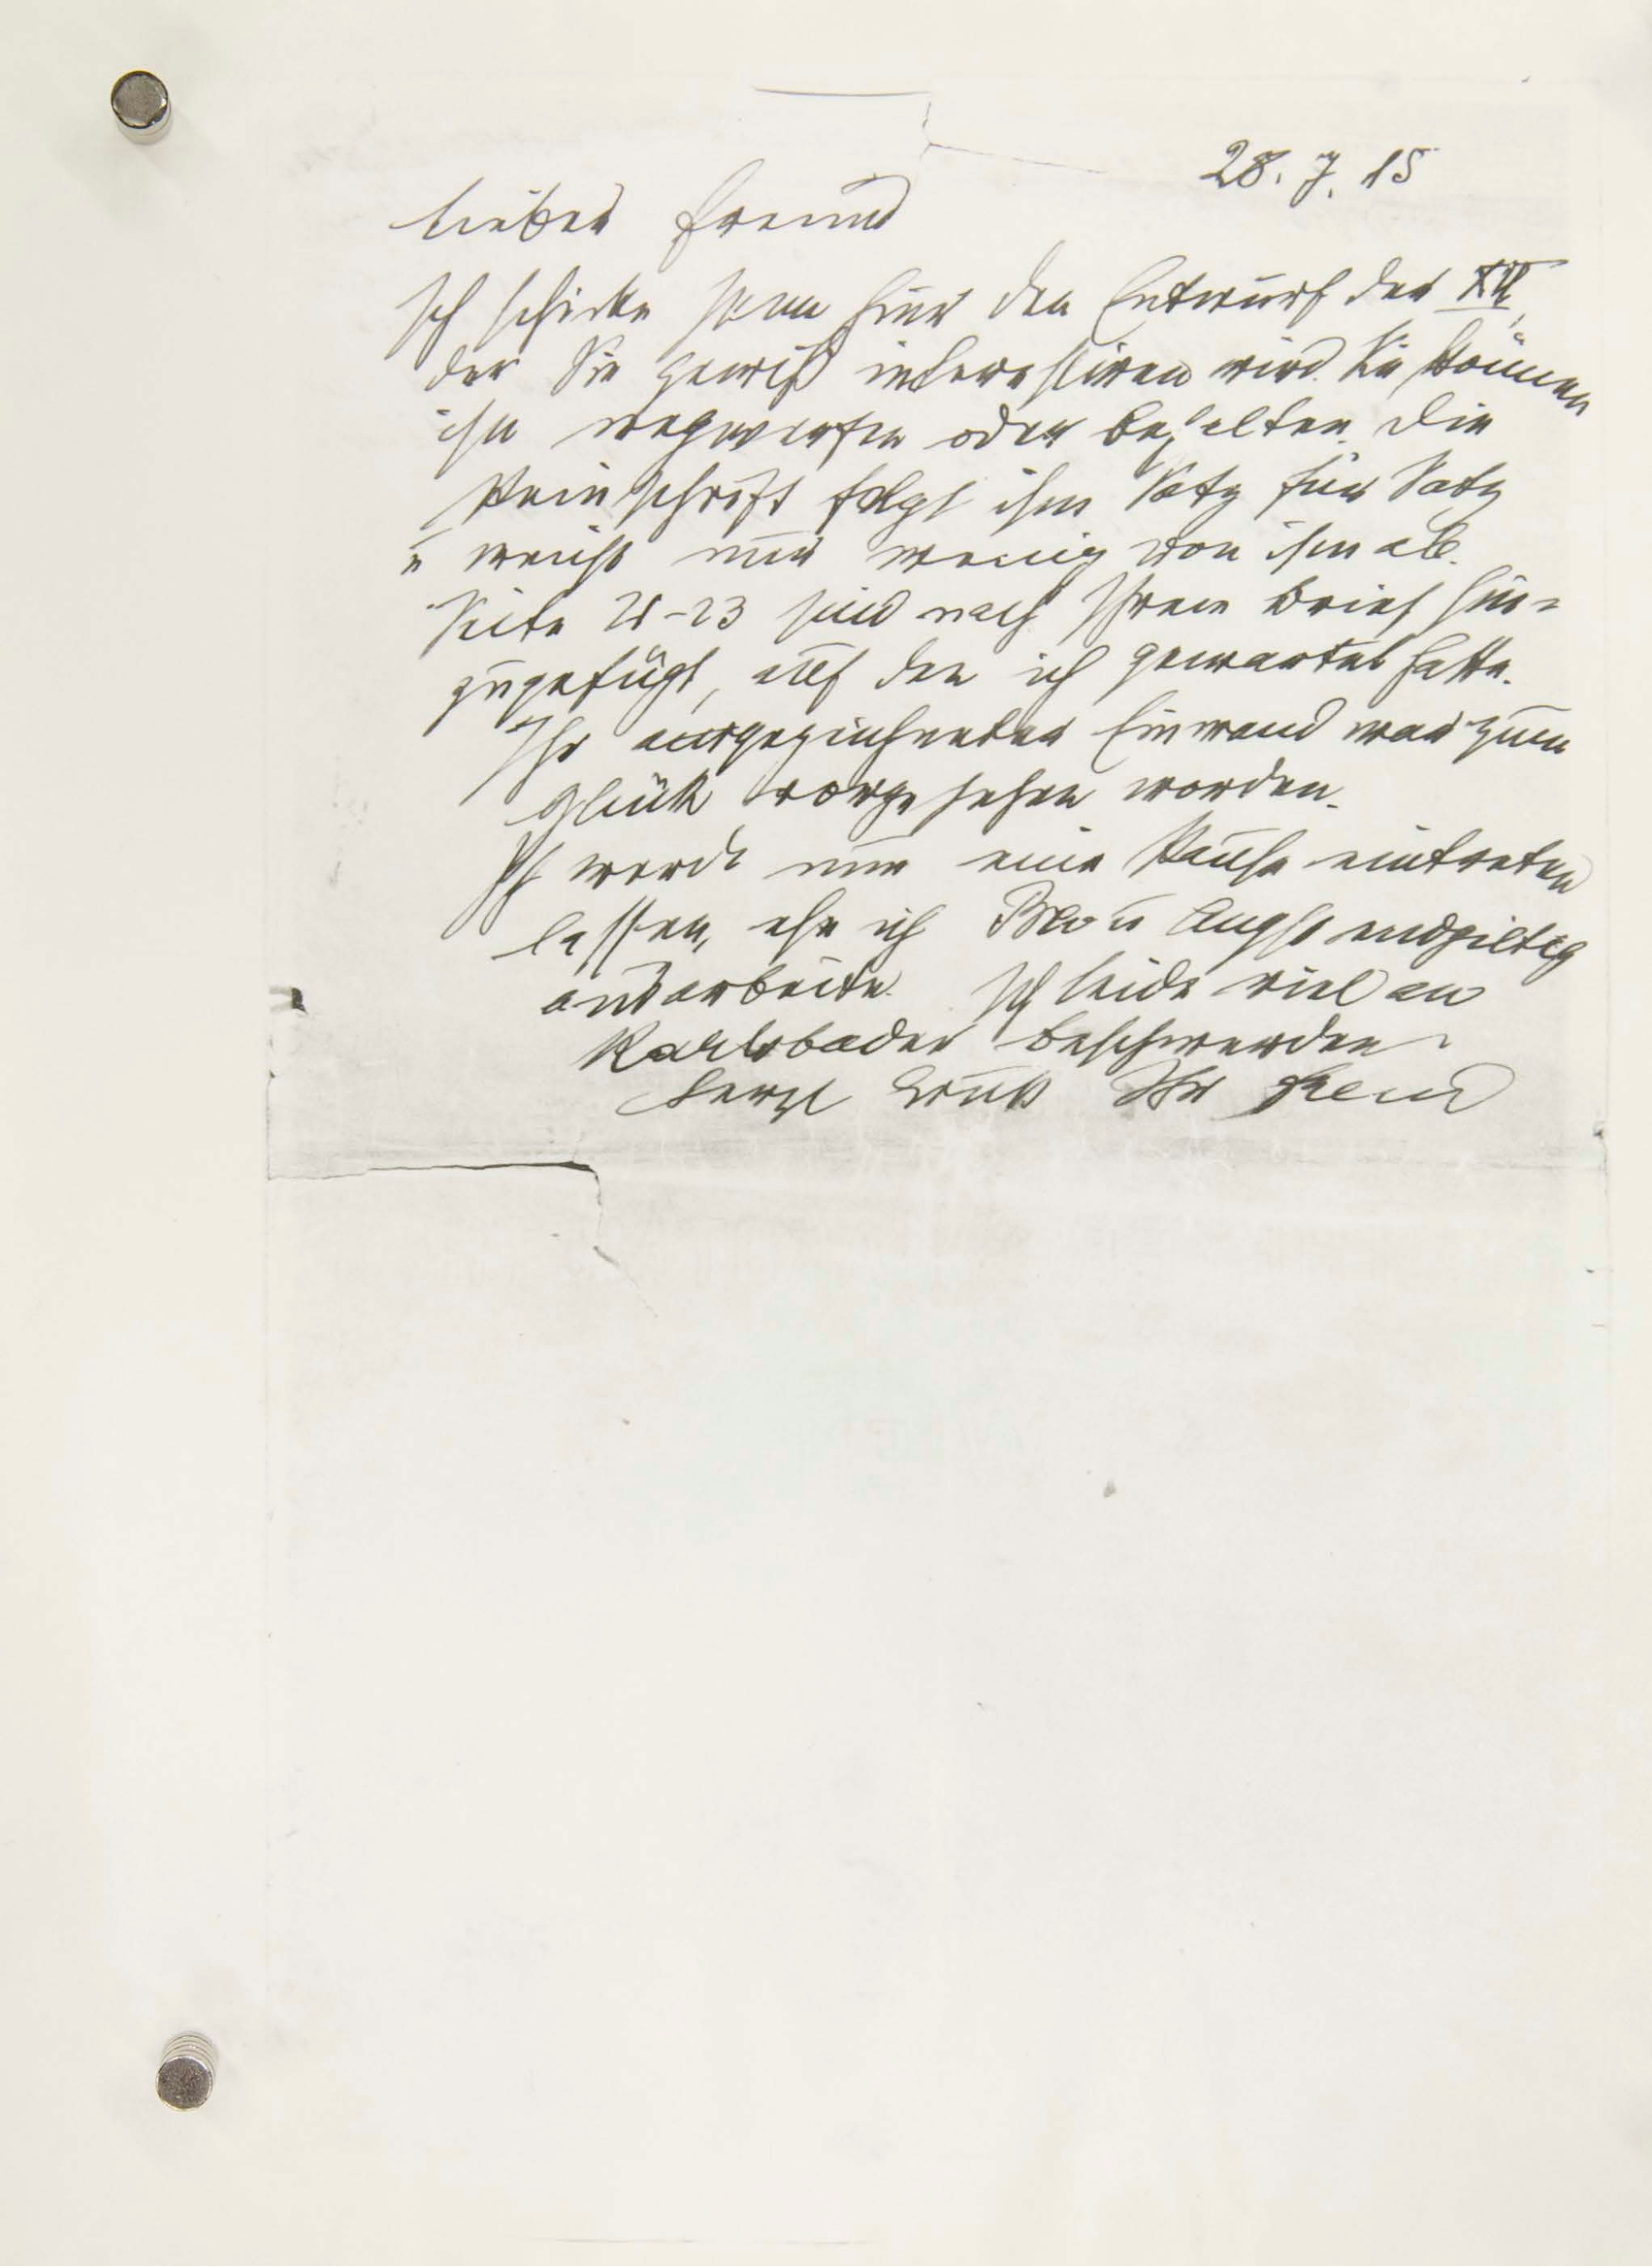 28. 7. 15
Lieber Freund
Ich schicke Ihnen hier den Entwurf der XII,
der Sie gewiß interessiren wird. Sie können
ihn wegwerfen oder behalten. Die
Reinschrift folgt ihm Satz für Satz
u weicht nur wenig von ihm ab.
Seite 21-23 sind nach Ihrem Brief hin=
zugefügt, auf den ich gewartet hatte.
Ihr ausgezeichneter Einwand war zum
Glück vorgesehen worden.
Ich werde nun eine Pause eintreten
lassen, ehe ich Bw u Angst endgiltig
ausarbeite. Ich leide viel an
Karlsbader Beschwerden
Herzl Gruß Ihr Freud